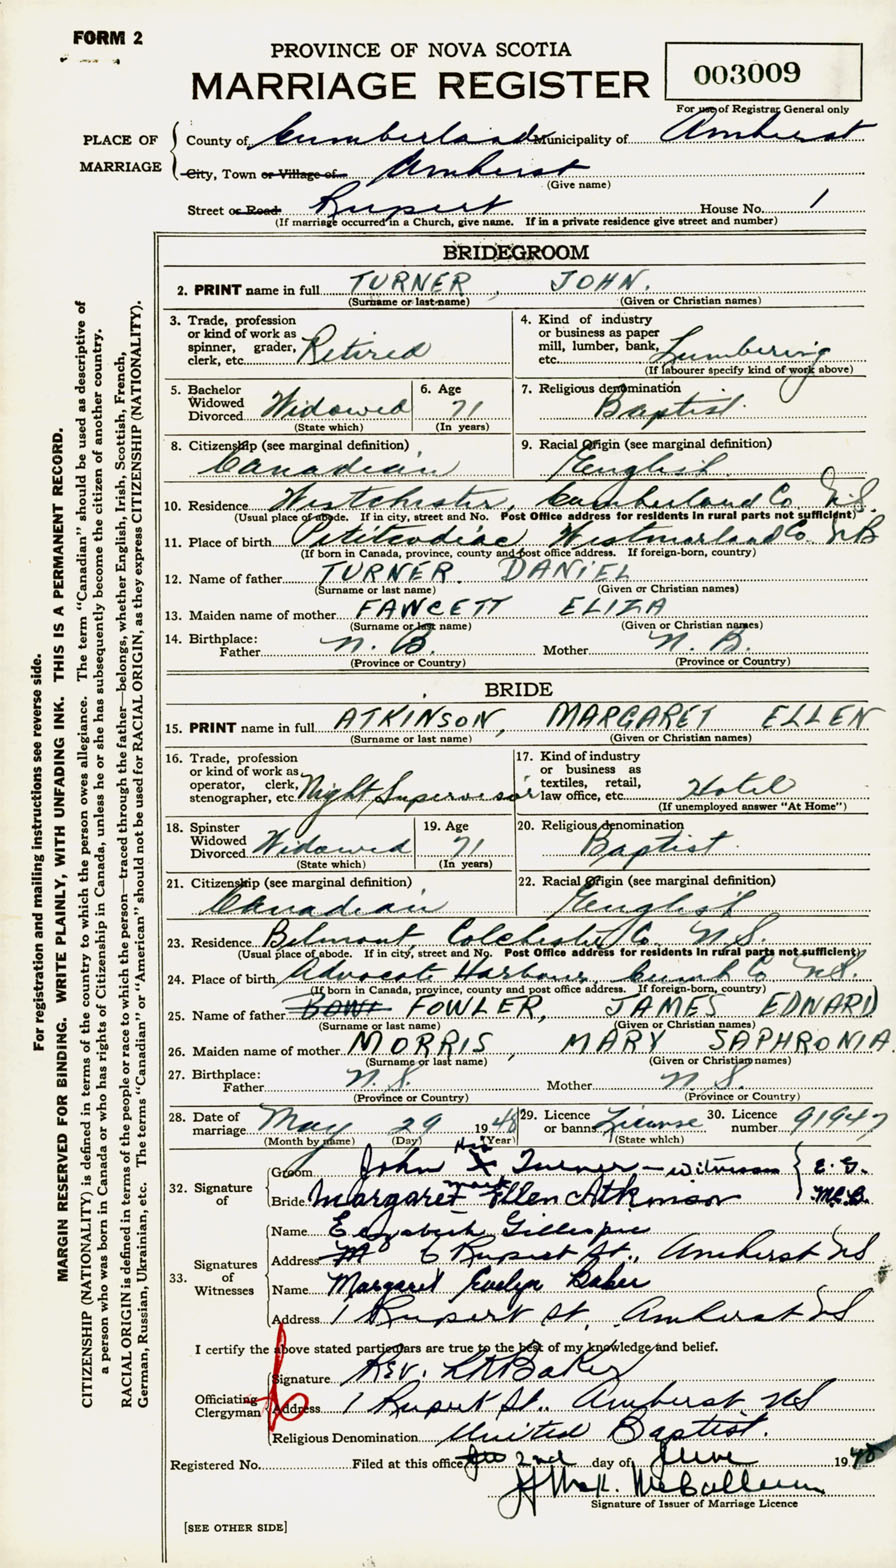 FORM 2
PROVINCE OF NOVA SCOTIA
MARRIAGE REGISTER
003009
For use of Registrar General only
PLACE OF MARRIAGE
County of Cumberland Municipality of Amherst
City, Town or Village of Amherst
(Give name)
Street or Road Rupert House No. 1
(If marriage occurred in a Church, give name. If in a private residence give street and number)
BRIDEGROOM
2. PRINT name in full TURNER, JOHN.
(Surname or last name) (Given or Christian names)
3. Trade, profession or kind of work as spinner, grader, clerk, etc. Retired
4. Kind of industry or business as paper mill, lumber, bank, etc. Lumbering
(If labourer specify kind of work above)
5. Bachelor Widowed Divorced Widowed
(State which)
6. Age 71
(In years)
7. Religious denomination Baptist.
8. Citizenship (see marginal definition) Canadian
9. Racial Origin (see marginal definition) English.
10. Residence Westchester, Cumberland Co. N.S.
(Usual place of abode. If in city, street and No. Post Office address for residents in rural parts not sufficient)
11. Place of birth Petitcodiac Westmorland Co. NB
(If born in Canada, province, county and post office address. If foreign-born, country)
12. Name of father TURNER. DANIEL
(Surname or last name) (Given or Christian names)
13. Maiden name of mother FAWCETT ELIZA
(Surname or last name) (Given or Christian names)
14. Birthplace:
Father N. B. Mother N. B.
(Province or Country) (Province or Country)
BRIDE
15. PRINT name in full ATKINSON, MARGARET ELLEN
(Surname or last name) (Given or Christian names)
16. Trade, profession or kind of work as operator, clerk, stenographer, etc. Night Supervisor
17. Kind of industry or business as textiles, retail, law office, etc. Hotel
(If unemployed answer "At Home")
18. Spinster Widowed Divorced Widowed
(State which)
19. Age 71
(In years)
20. Religious denomination Baptist.
21. Citizenship (see marginal definition) Canadian
22. Racial Origin (see marginal definition) English
23. Residence Belmont, Colchester Co. N.S.
(Usual place of abode. If in city, street and No. Post Office address for residents in rural parts not sufficient)
24. Place of birth Advocate Harbour, Cumb Co N.S.
(If born in Canada, province, county and post office address. If foreign-born, country)
25. Name of father FOWLER, JAMES EDWARD
(Surname or last name) (Given or Christian names)
26. Maiden name of mother MORRIS, MARY SAPHRONIA.
(Surname or last name) (Given or Christian names)
27. Birthplace:
Father N.S. Mother N.S.
(Province or Country) (Province or Country)
28. Date of marriage May 29 1948
(Month by name) (Day) (Year)
29. Licence or banns License
(State which)
30. Licence number 91947
32. Signature of
Groom John His X mark Turner — witnesses E. G. M.E.B.
Bride Margaret Ellen Atkinson
33. Signatures of Witnesses
Name Elizabeth Gillespie
Address 6 Rupert St., Amherst NS
Name Margaret Evelyn Baker
Address 1 Rupert St, Amherst NS
I certify the above stated particulars are true to the best of my knowledge and belief.
Officiating Clergyman
Signature Rev. Baker
Address 1 Rupert St., Amherst NS
Religious Denomination United Baptist.
Registered No. Filed at this office 2nd day of June 1948
McCallum
Signature of Issuer of Marriage Licence
[SEE OTHER SIDE]
For registration and mailing instructions see reverse side.
MARGIN RESERVED FOR BINDING. WRITE PLAINLY, WITH UNFADING INK. THIS IS A PERMANENT RECORD.
CITIZENSHIP (NATIONALITY) is defined in terms of the country to which the person owes allegiance. The term "Canadian" should be used as descriptive of
a person who was born in Canada or who has rights of Citizenship in Canada, unless he or she has subsequently become the citizen of another country.
RACIAL ORIGIN is defined in terms of the people or race to which the person—traced through the father—belongs, whether English, Irish, Scottish, French,
German, Russian, Ukrainian, etc. The terms "Canadian" or "American" should not be used for RACIAL ORIGIN, as they express CITIZENSHIP (NATIONALITY).